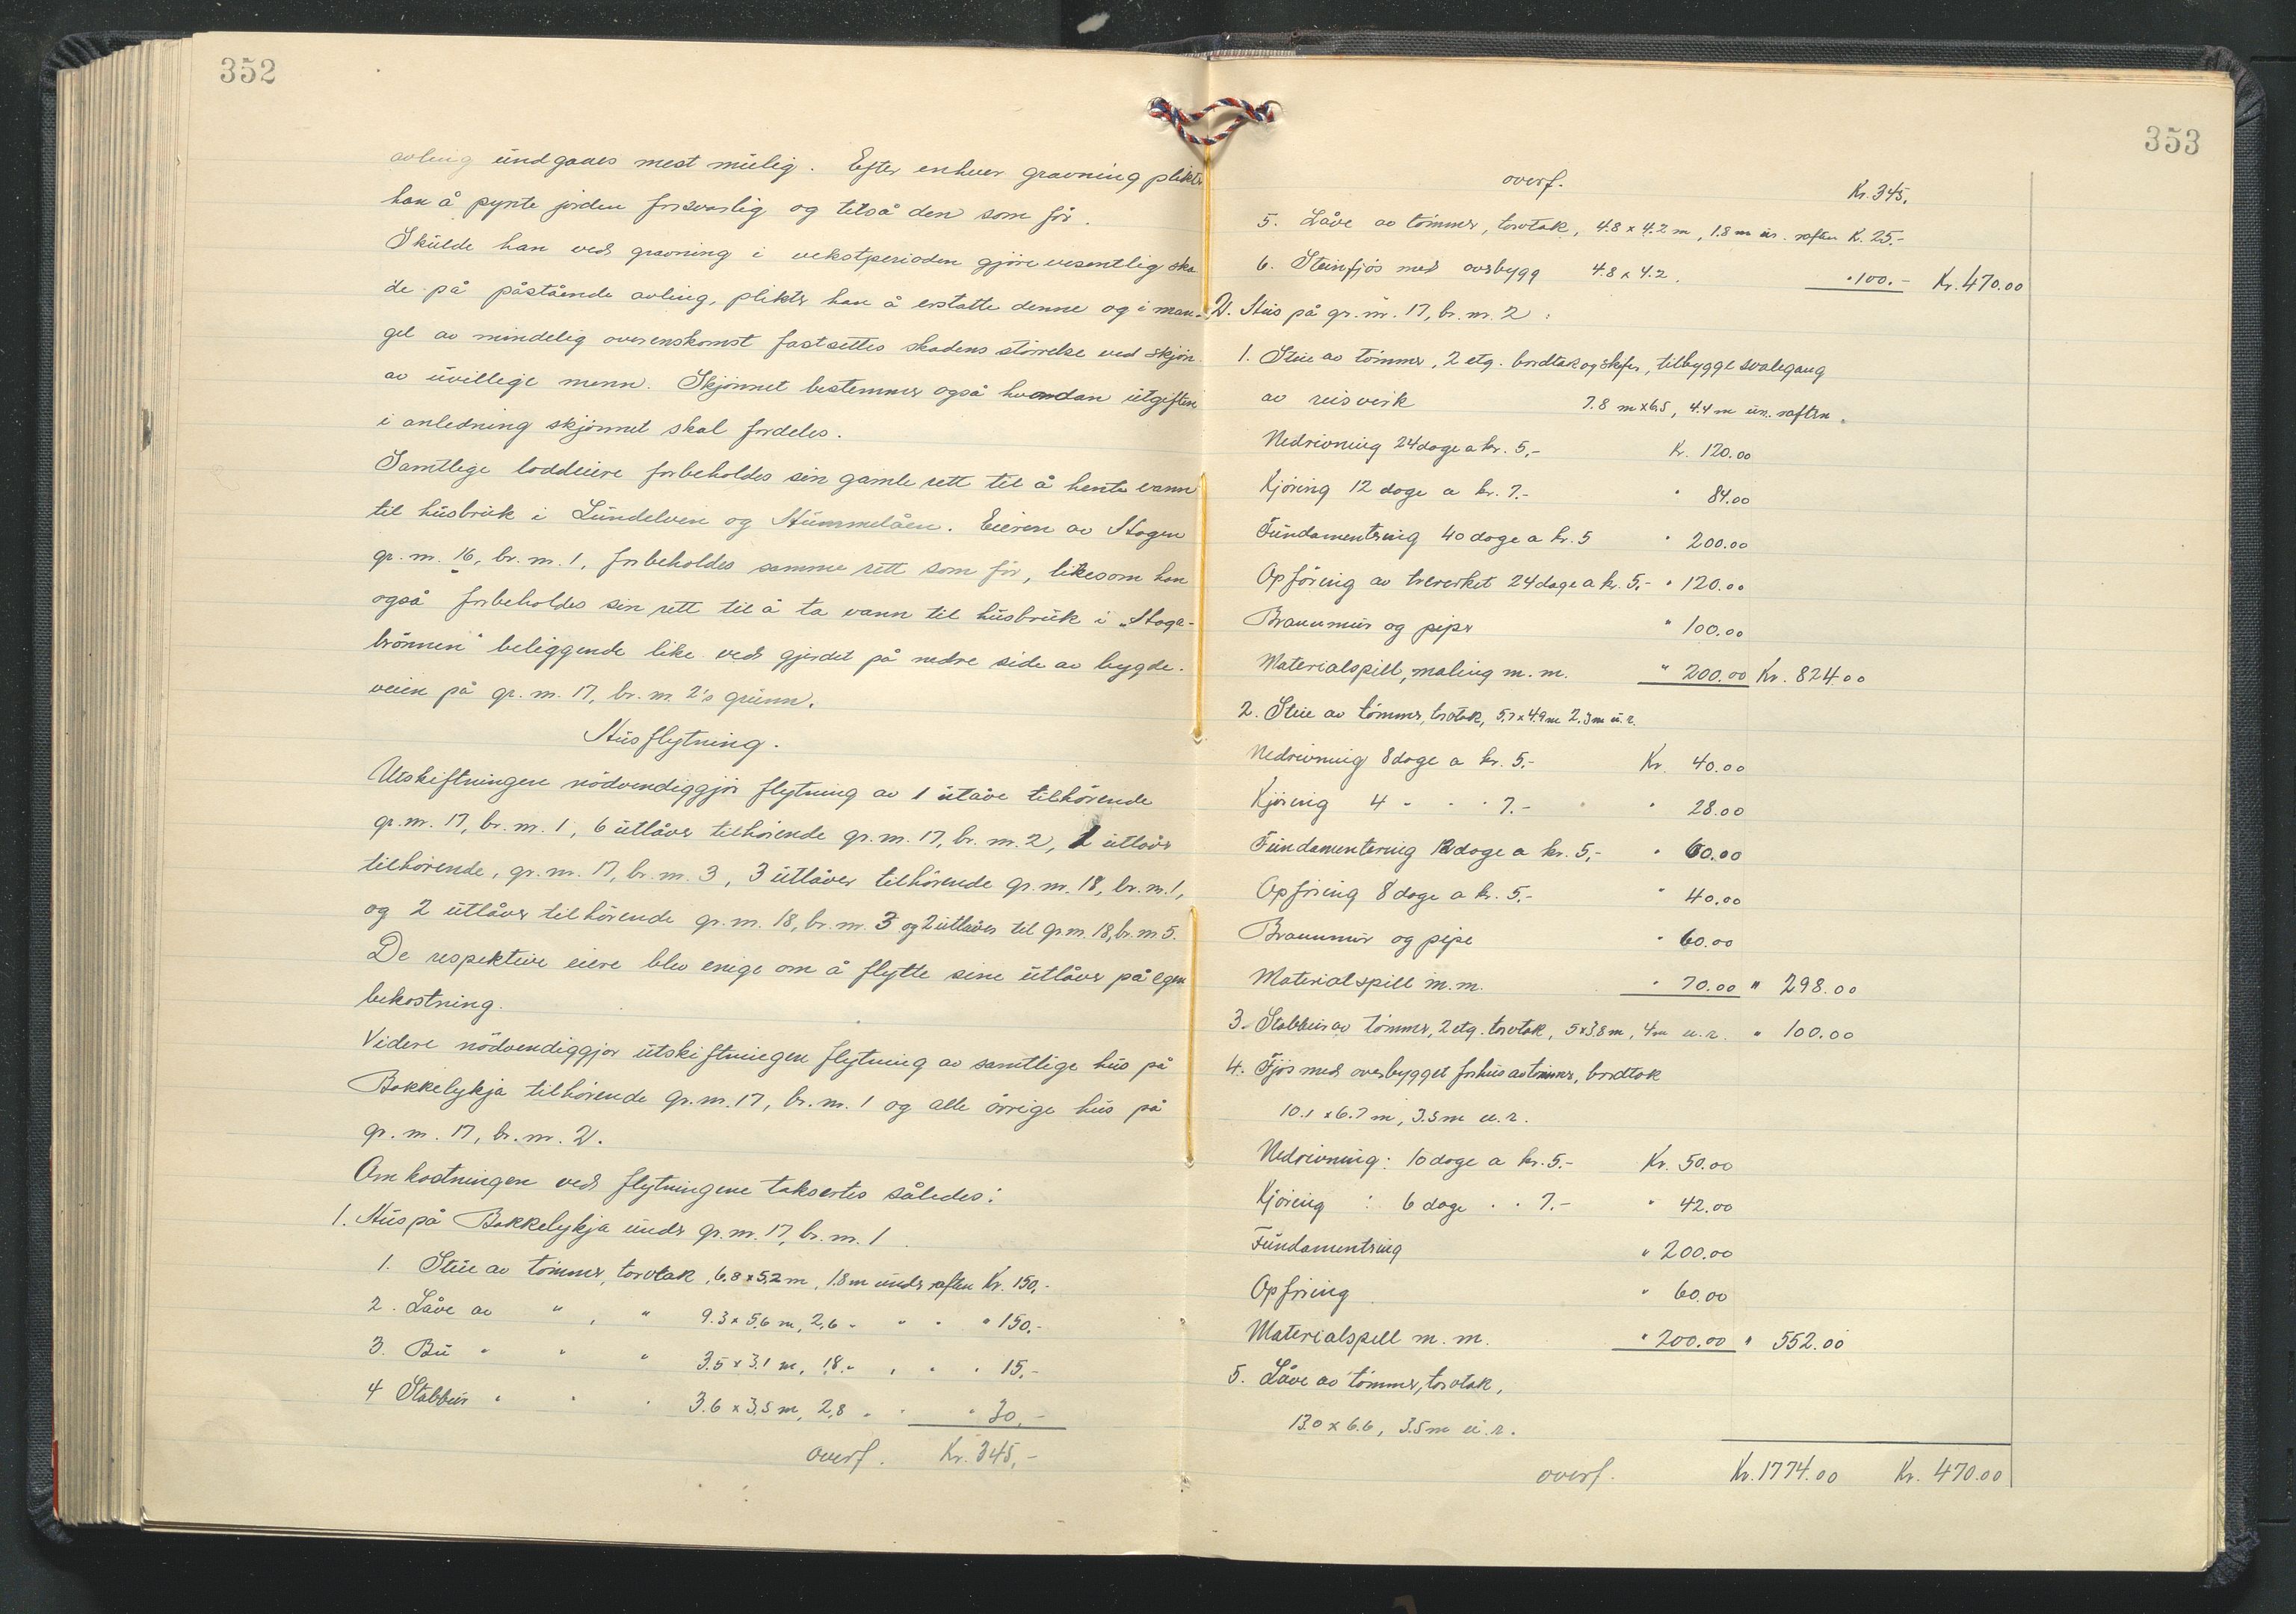 352
avling undgaaes mest mulig. Efter enhver gravning plikter
han å pynte jorden forsvarlig og tilså den som før.
Skulde han ved gravning i vekstperioden gjøre vesentlig ska
de på påstående avling, plikter han å erstatte denne og i man-
gel av mindelig overenskomst fastsettes skadens størrelse ved skjønn
av uvillige menn. Skjønnet bestemmer også hvordan utgiften
i anledning skjønnet skal fordeles.
Samtlige loddeiere forbeholdes sin gamle rett til å hente vann
til husbruk i Lundelven og Hummelåen. Eieren av Hagen
gr. nr. 16, br. nr. 1, forbeholdes samme rett som før, likesom han
også forbeholdes sin rett til å ta vann til husbruk i "Haga-
brønnen" beliggende like ved gjerdet på nedre side av bygde-
veien på gr. nr. 17, br. nr. 2's grunn.
Husflytning.
Utskiftningen nødvendiggjør flytning av 1 utløe tilhørende
gr. nr. 17, br. nr. 1, 6 utlåver tilhørende gr. nr. 17, br. nr. 2, 1 utlåve
tilhørende, gr. nr. 17, br. nr. 3, 3 utlåver tilhørende gr. nr. 18, br. nr. 1,
og 2 utlåver tilhørende gr. nr. 18, br. nr. 3 og 2 utlåver til gr. nr. 18, br. nr 5.
De respektive eiere blev enige om å flytte sine utlåver på egen
bekostning.
Videre nødvendiggjør utskiftningen flytning av samtlige hus på
Bakkelykja tilhørende gr. nr. 17, br. nr. 1 og alle øvrige hus på
gr. nr. 17, br. nr. 2.
Omkostningen ved flytningene takseres således:
1. Hus på Bakkelykja under gr. nr. 17, br. nr. 1
1. Stue av tømmer, torvtak, 6.8 x 5.2 m, 1.8 m under raften Kr. 150,-
2. Låve av " , " 9.3 x 5,6 m, 2,6 " " " " 150,-
3. Bu " " " 3.5 x 3.1 m, 1.8 " , " " 15,-
4 Stabbur " " " 3.6 x 3,5 m, 2,8 " " " 30,-
overf. Kr. 345,-
353
overf. Kr. 345,
5. Låve av tømmer, torvtak, 4.8 x 4.2 m, 1.8 m un. raften K. 25.-
6. Steinfjøs med overbygg 4.8 x 4.2. " 100.- Kr. 470.00
2. Hus på gr. nr. 17, br. nr. 2 :
1. Stue av tømmer, 2 etg. bordtak og skifer, tilbygget svalegang
av reisverk 7.8 m x 6.5, 4.4 m un. raften.
Nedrivning 24 dage a kr. 5,- Kr. 120.00
Kjøring 12 dage a kr. 7.- " 84.00
Fundamentering 40 dage a kr. 5 " 200.00
Opføring av treverket 24 dage a kr. 5.- " 120.00
Brannmur og piper " 100.00
Materialspill, maling m. m. " 200.00 Kr. 824.00
2. Stue av tømmer, torvtak, 5.7 x 4.9 m 2.3 m u. r.
Nedrivning 8 dage a kr. 5.- Kr. 40.00
Kjøring 4 " " " 7.- " 28.00
Fundamentering 12 dage a kr. 5,- " 60.00
Opføring 8 dage a kr. 5.- " 40.00
Brannmur og pipe " 60.00
Materialspill m.m. " 70.00 " 298.00
3. Stabbur av tømmer, 2 etg. torvtak, 5 x 3.8 m, 4 m u. r. " 100.00
4. Fjøs med overbygget forhus av tømmer, bordtak
10.1 x 6.7 m, 3.5 m u. r.
Nedrivning: 10 dage a kr. 5.- Kr. 50.00
Kjøring : 6 dage " " 7.- " 42.00
Fundamentering " 200.00
Opføring " 60.00
Materialspill m. m. " 200.00 " 552.00
5. Låve av tømmer, torvtak,
13.0 x 6.6, 3.5 m u. r.
overf. Kr. 1774.00 Kr. 470.00